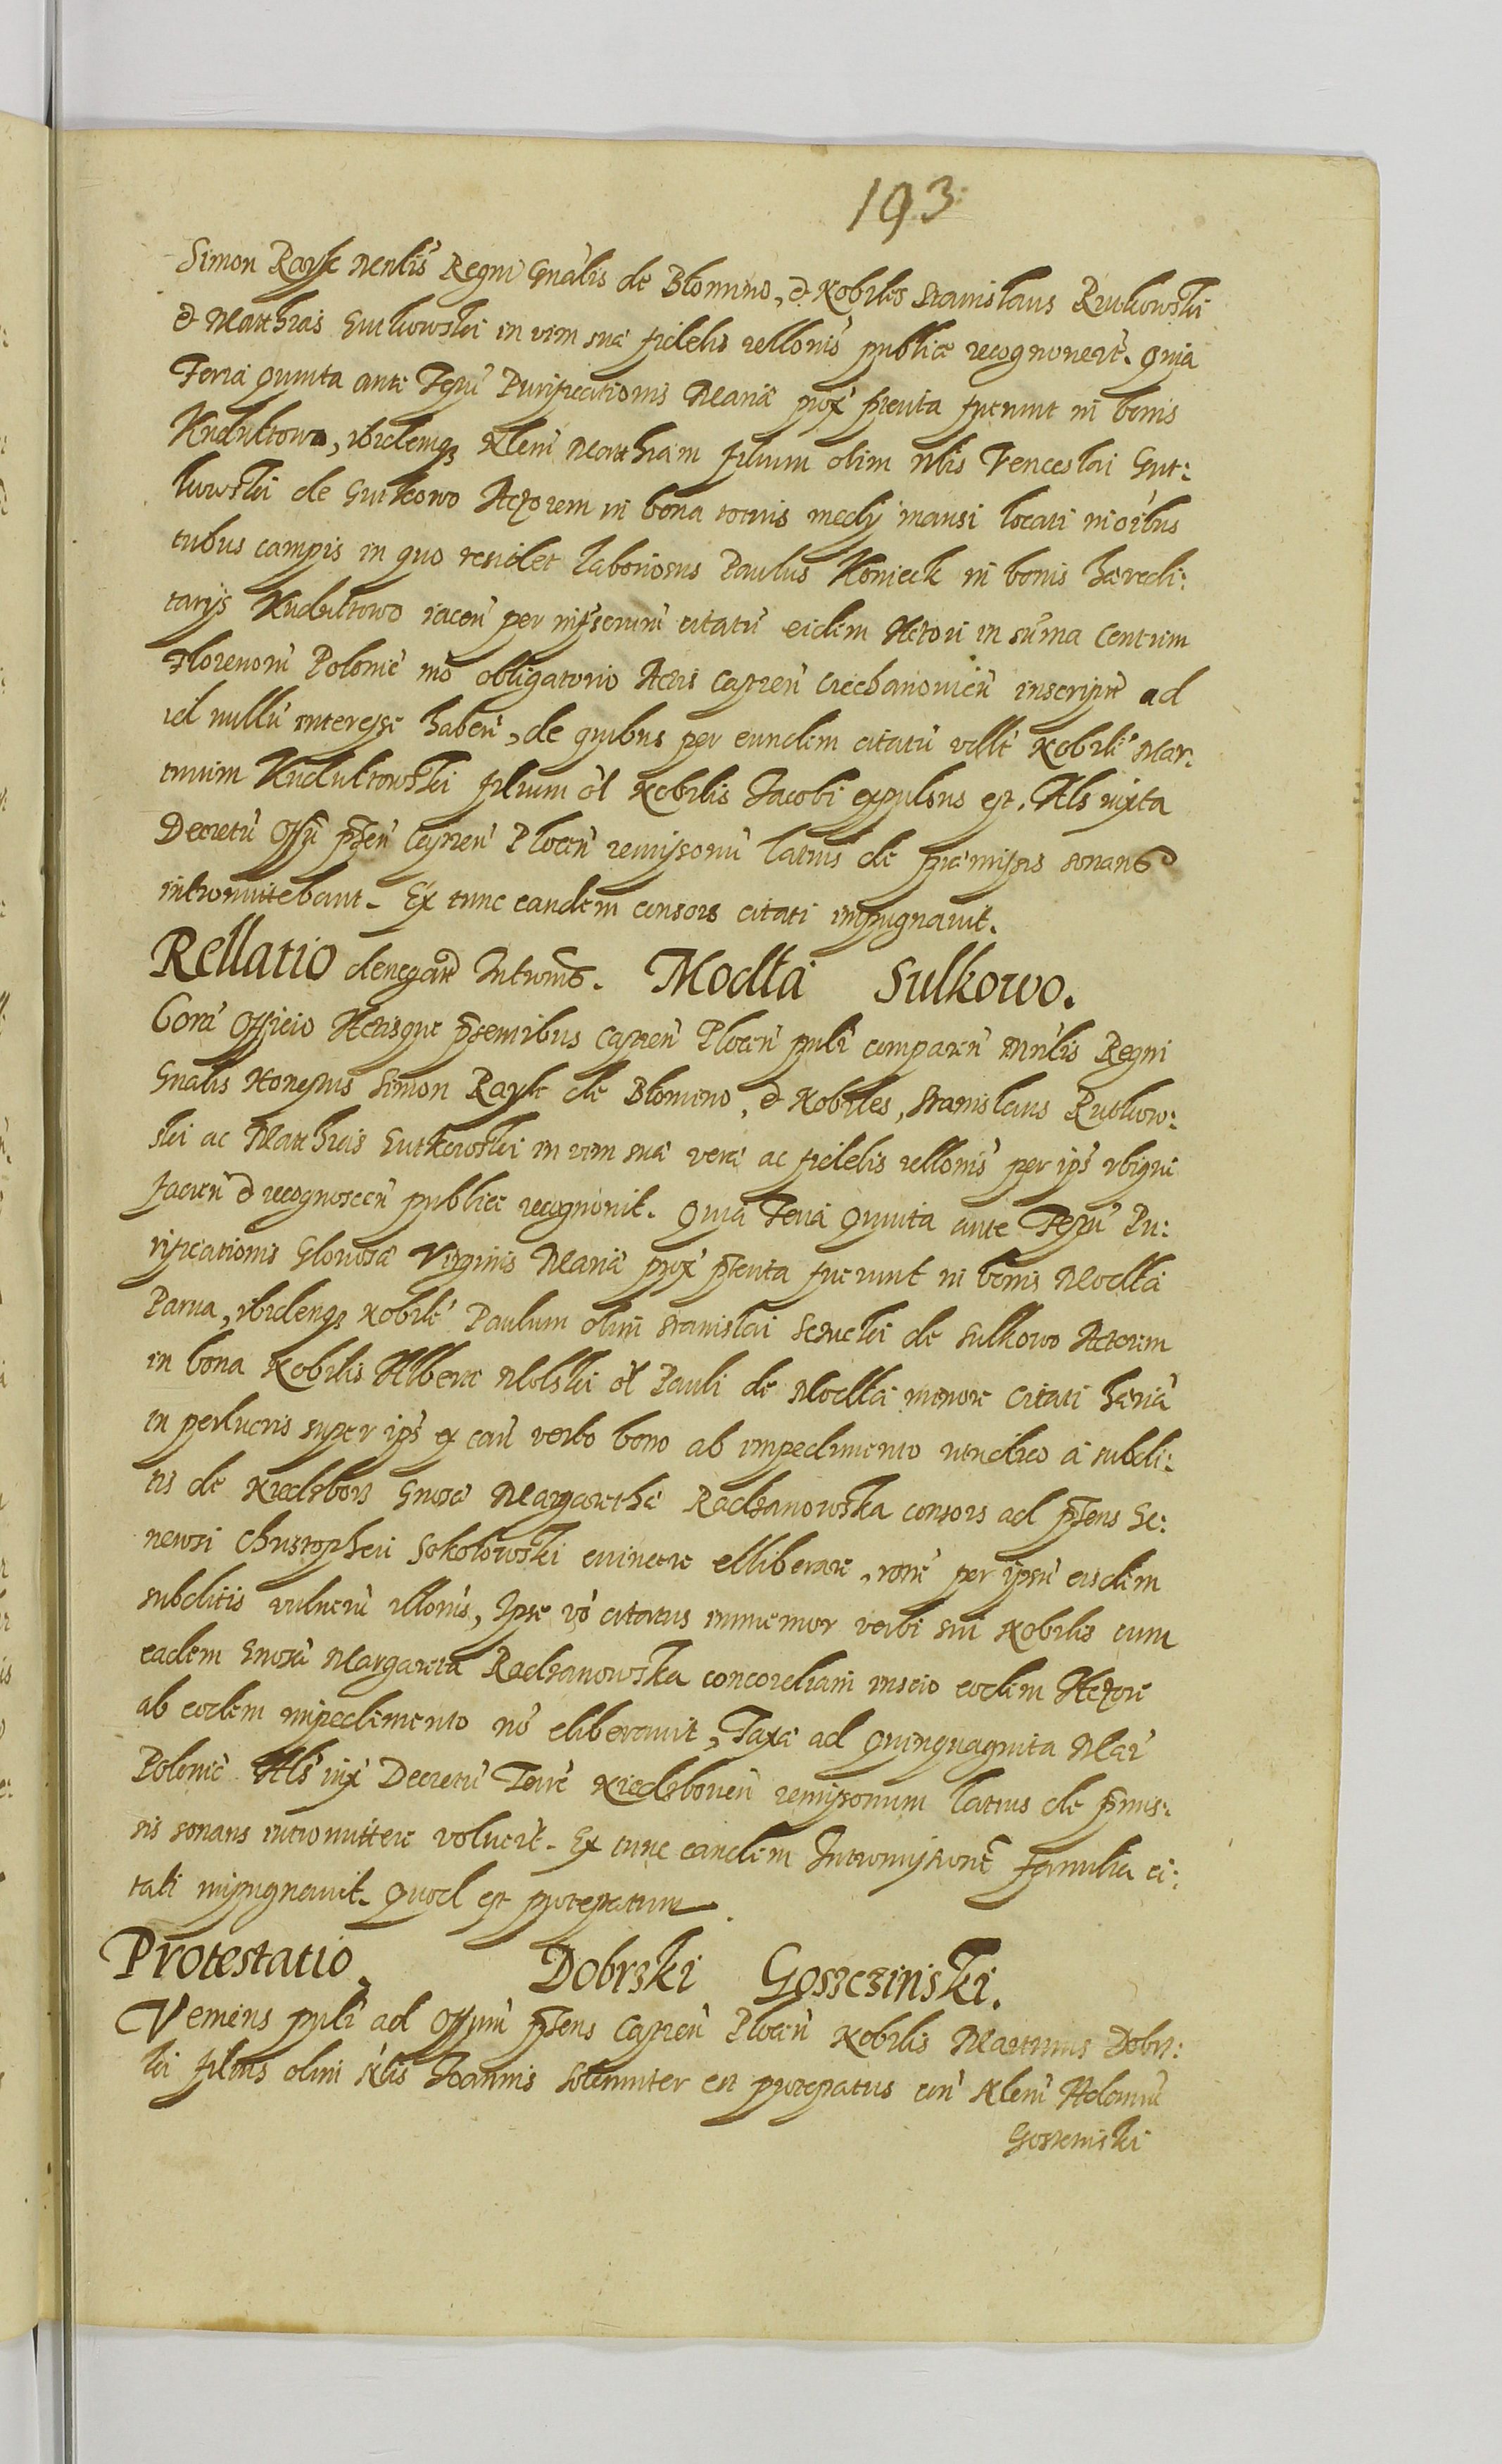 193
Simon Rayk Mnlis Regni Gnalis de Blomino, & Nobiles Stanislaus Rutkowski
& Matthias Gutkowski in vim suæ fidelis rellonis publice recognouert. Quia
Feria Quinta ante Festu Purificationis Mariæ prox præterita fuerunt in bonis
Kuduktowo, ibidemqz Nlem Matthiam filium olim Nlis Venceslai Gut:
kowski de Gutkowo Actorem in bona totius medij mansi locati in oibus
tribus campis in quo residet laboriosus Paulus Konieck in bonis hæredi:
tarijs Kuduktowo iacen per infrscriptu citatu eidem Actori in suma Centum
Florenoru Polonic mo obligatorio Actis Castren Ciechanouien inscript ad
id nullu interesse haben, de quibus per eundem citatu vtlte Nobile Mar:
tinum Kuduktowski filium ol Nobilis Jacobi expulsus est. Als iuxta
Decretu Offi pnten Castren Plocen remissoriu latius de præmissis sonans
intromittebant. Ex tunc eandem consors citati impugnauit.
Rellatio denegatæ Intromis. Modła Sulkowo.
Cora Officio Actisque pntibus Castren Plocen psonlr comparen Mnlis Regni
Gnalis Honestus Simon Rayk de Blomino, & Nobiles, Stanislaus Rutkow:
ski ac Matthias Gutkowski in vim suæ veræ ac fidelis rellonis per ipos vbique
facien & recognoscen publice recognouit. Quia Feria Quinta ante Festu Pu:
rificationis Gloriosæ Virginis Mariæ prox præterita fuerunt in bonis Modła
Parua, ibidemqz Nobile Paulum olim Stanislai de Sulkowo Actorem
in bona Nobilis Alberti Molski ol Pauli de Modła minore Citati hæria
in perlucris super ipso ex cau verbo bono ab impedimento vendico a subdi:
tis de Niedzborz Gnosa Margaretha Radzanowska consors ad pntens Ge:
nerosi Christopheri Sokołowski euincere elliberare, rone per ipsu eisdem
subditis vulneru illonis, Ipse vo citatus immemor verbi sui Nobilis cum
eadem Gnosa Margareta Radzanowska concordiam inscio eodem Actore
ab eodem impedimento no eliberauit, Taxa ad Quinquaginta Mar
Polonic Als iux Decretu Terre Niedzboren remissorium latius de pmis:
sis sonans intromittere voluert. Ex tunc eandem Intromissione famulia ci:
tati impugnauit. Quod est protestatum.
Protestatio. Dobrzki Goszczinski.
Veniens psonlr ad Offium pntens Castren Plocen Nobilis Martinus Dobrz:
ki filius olim Nlis Joannis solenniter est protestatus con Nlem Adamu
Goszcinski